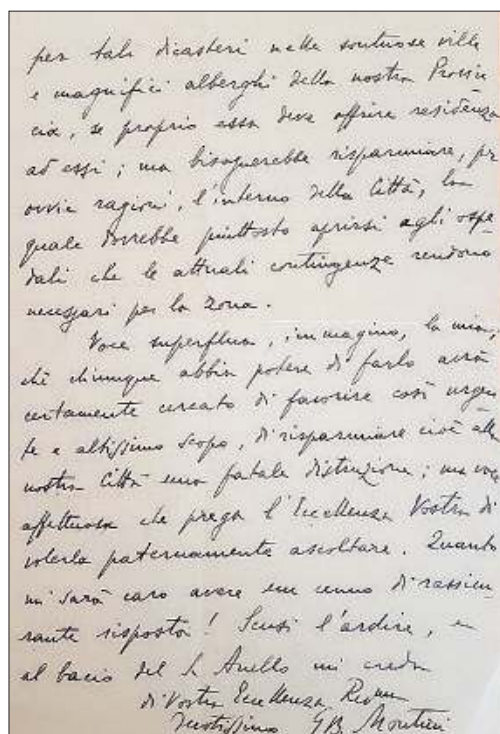 per tali dicasteri nelle sontuose ville
e magnifici alberghi della nostra Provin
cia, se proprio essa deve offrire residenza
ad essi; ma bisognerebbe risparmiare, per
ovvie ragioni, l'interno della Città, la
quale dovrebbe piuttosto aprirsi agli ospe
dali che le attuali contingenze rendono
necessari per la zona.
Voce superflua, immagino, la mia,
chè chiunque abbia potere di farlo avrà
certamente cercato di favorire così urgen
te e altissimo scopo, di risparmiare cioè alla
nostra Città una fatale distruzione; ma voce
affettuosa che prega l'Eccellenza Vostra di
volerla paternamente ascoltare. Quanto
mi sarà caro avere un cenno di rassicu
rante risposta! Scusi l'ardire, e
al bacio del S. Anello mi creda
di Vostra Eccellenza Rev.ma
devotissimo GB. Montini